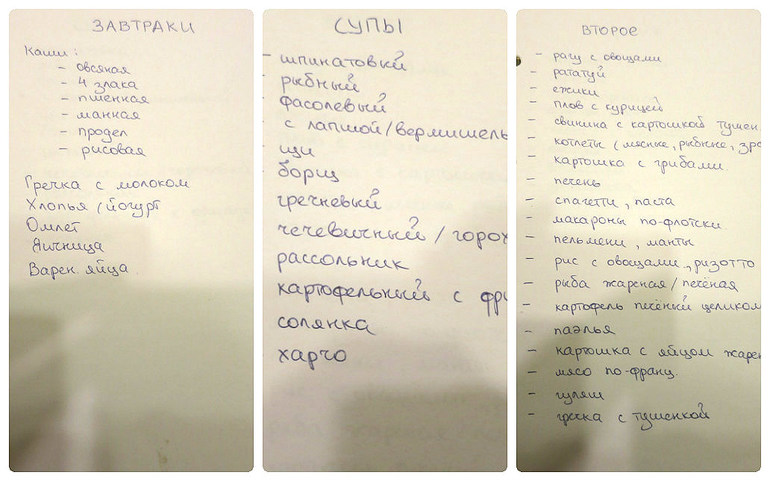 ЗАВТРАКИ
Каши:
- овсяная
- 4 злака
- пшённая
- манная
- продел
- рисовая
Гречка с молоком
Хлопья /йогурт
Омлет
Яичница
Варен. яйца
СУПЫ
- шпинатовый
рыбный
фасолевый
с лапшой/вермишель
щи
борщ
гречневый
чечевичный / горох
рассольник
картофельный с фри
солянка
харчо
ВТОРОЕ
- рагу с овощами
- рататуй
- ежики
- плов с курицей
- свинина с картошкой тушен.
- котлеты (мясные, рыбные,
- картошка с грибами.
- печень
- спагетти, паста
- макароны по-флотски
- пельмени, манты
- рис с овощами, ризотто
- рыба жареная/печёная
- картофель печёный целиком
- паэлья
- картошка с яйцом жарен
- мясо по-франц.
- гуляш
- гречка с тушенкой